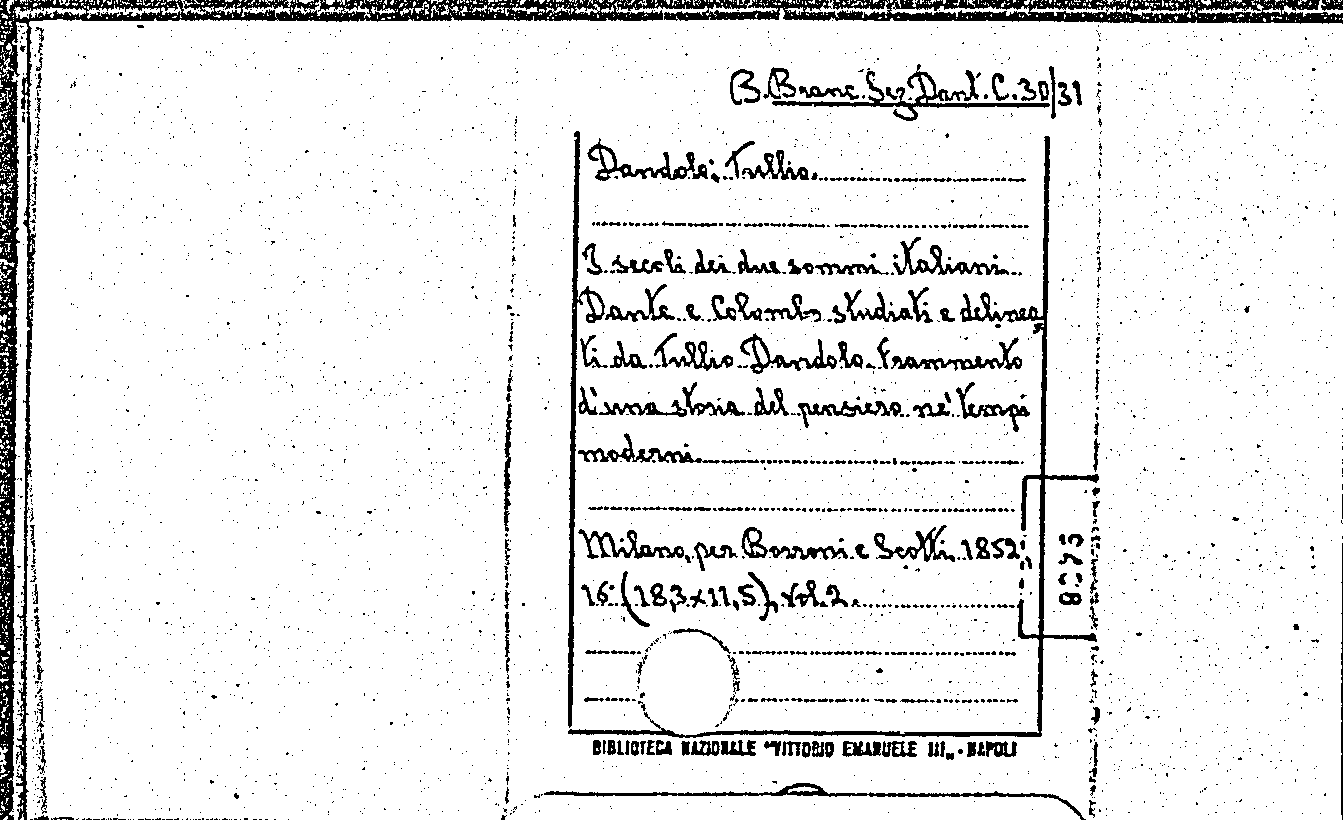 B. Branc. Sez. Dant. C. 30/31
Dandolo, Tullio.
I secoli dei due sommi italiani
Dante e Colombo studiati e delinea
ti da Tullio Dandolo. Frammento
d'una storia del pensiero ne' tempi
moderni.
Milano, per Borroni e Scotti, 1852,
16° (18,3x11,5), vol. 2.
BIBLIOTECA NAZIONALE "VITTORIO EMANUELE III„ - NAPOLI